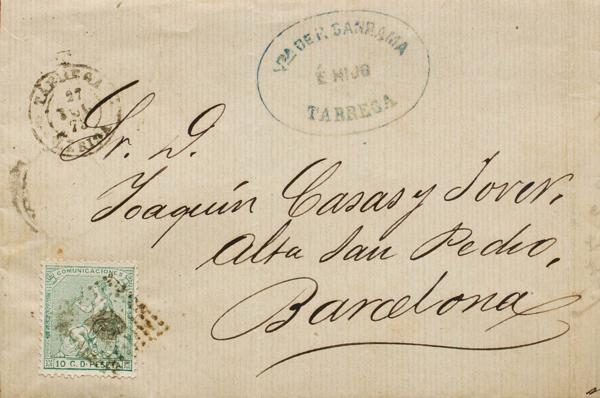 VDA DE P. SANRAMA
É HIJO
TARREGA
TARREGA
27
73
Sr. D.
Joaquín Casas y Jover,
Alta San Pedro,
Barcelona
COMUNICACIONES
10 C. D. PESETA